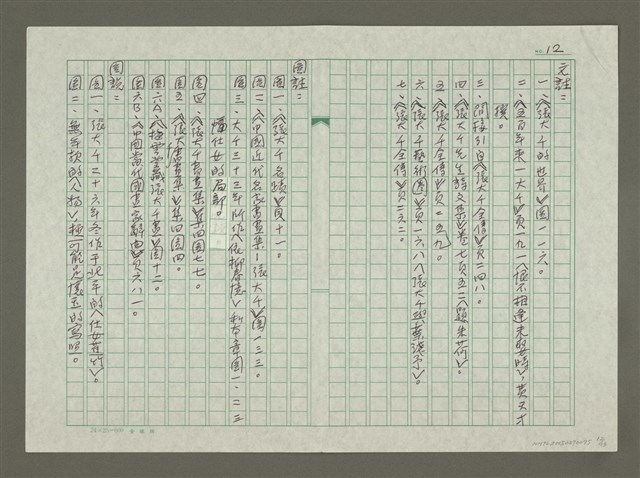 NO. 12
文註：
一、《張大千的世界》圖一一六。
二、《五百年來一大千》頁一九一〈恨不相逢未嫁時〉，黃天才撰。
三、間接引自《張大千全傳》頁二四八。
四、《張大千先生詩文集》卷七頁五二〈題朱荷〉。
五、《張大千全傳》頁一五九。
六、《張大千藝術圈》頁一六八〈張大千與葉淺予〉。
七、《張大千全傳》頁二六二。
圖註：
圖一、《張大千名蹟》頁十一。
圖二、《中國近代名家書畫集－張大千》圖一三三。
圖三、大千三十三年所作〈依柳春情〉和本書圖一、二三
仕女的局部。
圖四、《張大千書畫集》集四圖七七。
圖五、《張大千書畫集》集四圖四。
圖六A、《梅雲堂藏張大千畫》圖十二。
圖六B、《中國當代國畫家辭典》頁六八一。
圖說：
圖一、張大千二十六年冬作于北平的〈仕女蕉竹〉。
圖二、無年款的〈人物〉，極可能是懷玉的寫照。